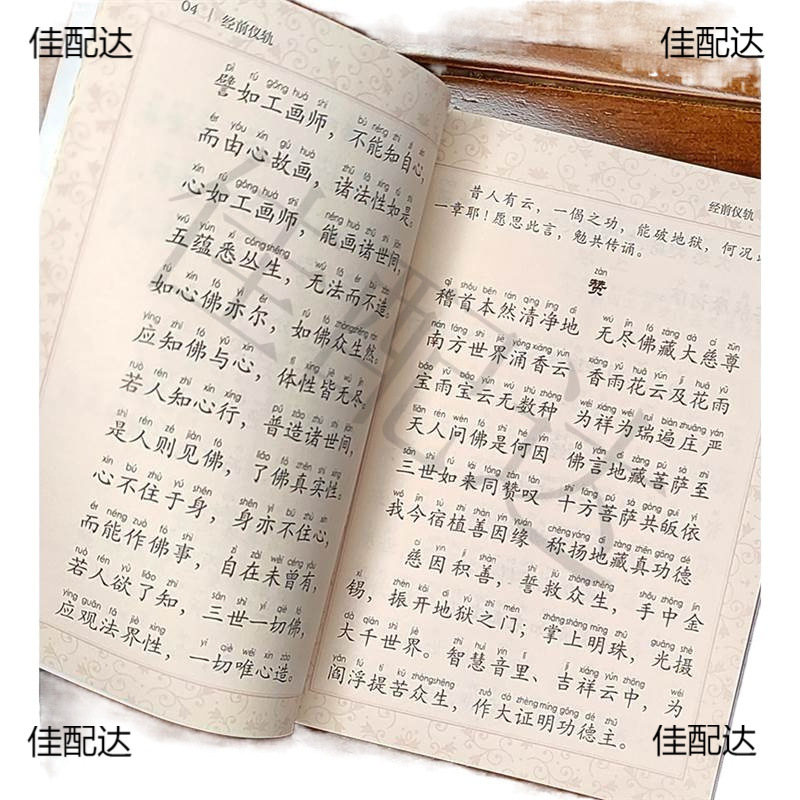 佳配达 佳配达
04 | 经前仪轨
pì rú gōng huà shī bù néng zhī zì
譬如工画师，不能知自心，
ér yóu xīn gù huà zhū fǎ xìng rú shì
而由心故画，诸法性如是。
xīn rú gōng huà shī néng huà zhū shì jiān
心如工画师，能画诸世间，
wǔ yùn xī cóng shēng wú fǎ ér bú zào
五蕴悉丛生，无法而不造。
rú xīn fó yì ěr rú fó zhòng shēng rán
如心佛亦尔，如佛众生然。
yīng zhī fó yǔ xīn tǐ xìng jiē wú jìn
应知佛与心，体性皆无尽。
ruò rén zhī xīn xíng pǔ zào zhū shì jiān
若人知心行，普造诸世间，
shì rén zé jiàn fó liǎo fó zhēn shí xìng
是人则见佛，了佛真实性。
xīn bú zhù yú shēn shēn yì bú zhù xīn
心不住于身，身亦不住心，
ér néng zuò fó shì zì zài wèi céng yǒu
而能作佛事，自在未曾有，
ruò rén yù liǎo zhī sān shì yí qiè fó
若人欲了知，三世一切佛，
yīng guān fǎ jiè xìng yí qiè wéi xīn zào
应观法界性，一切唯心造。
经前仪轨
昔人有云，一偈之功，能破地狱，何况
一章耶！愿思此言，勉共传诵。
zàn
赞
qǐ shǒu běn rán qīng jìng dì wú jìn fó zàng dà cí zūn
稽首本然清净地 无尽佛藏大慈尊
nán fāng shì jiè yǒng xiāng yún xiāng yǔ huā yún jí huā yǔ
南方世界涌香云 香雨花云及花雨
bǎo yǔ bǎo yún wú shù zhǒng wéi xiáng wéi ruì biàn zhuāng yán
宝雨宝云无数种 为祥为瑞遍庄严
tiān rén wèn fó shì hé yīn fó yán dì zàng pú sà zhì
天人问佛是何因 佛言地藏菩萨至
sān shì rú lái tóng zàn tàn shí fāng pú sà gòng guī yī
三世如来同赞叹 十方菩萨共皈依
wǒ jīn sù zhí shàn yīn yuán chēng yáng dì zàng zhēn gōng dé
我今宿植善因缘 称扬地藏真功德
cí yīn jī shàn shì jiù zhòng shēng shǒu zhōng jīn
慈因积善，誓救众生，手中金
xī zhèn kāi dì yù zhī mén zhǎng shàng míng zhū guāng shè
锡，振开地狱之门；掌上明珠，光摄
dà qiān shì jiè zhì huì yīn lǐ jí xiáng yún zhōng wèi
大千世界。智慧音里、吉祥云中，为
yán fú tí kǔ zhòng shēng zuò dà zhèng míng gōng dé zhǔ
阎浮提苦众生，作大证明功德主。
佳配达
佳配达 佳配达